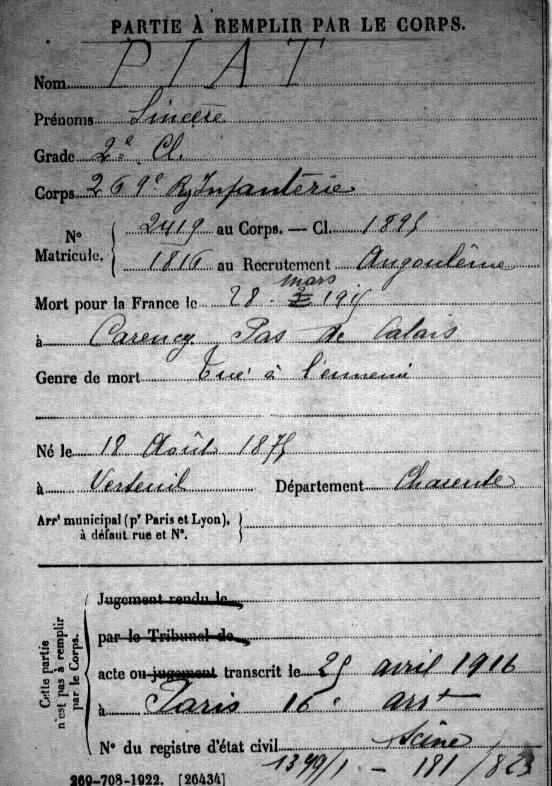 PARTIE À REMPLIR PAR LE CORPS.
Nom PIAT
Prénoms Sincère
Grade 2e Cl.
Corps 269e Rg Infanterie
N° Matricule. { 2419 au Corps. — Cl. 1895
1816 au Recrutement Angoulême
mars
Mort pour la France le 28 - 1915
à Carency Pas de Calais
Genre de mort Tué à l'ennemi
Né le 18 Août 1875
à Verteuil Département Charente
Arrt municipal (pr Paris et Lyon),
à défaut rue et N°.
Cette partie n'est pas à remplir par le Corps.
Jugement rendu le
par le Tribunal de
acte ou jugement transcrit le 25 avril 1916
à Paris 16e arrt
Seine
N° du registre d'état civil
1399/1 - 181/
269-708-1922. [26434]